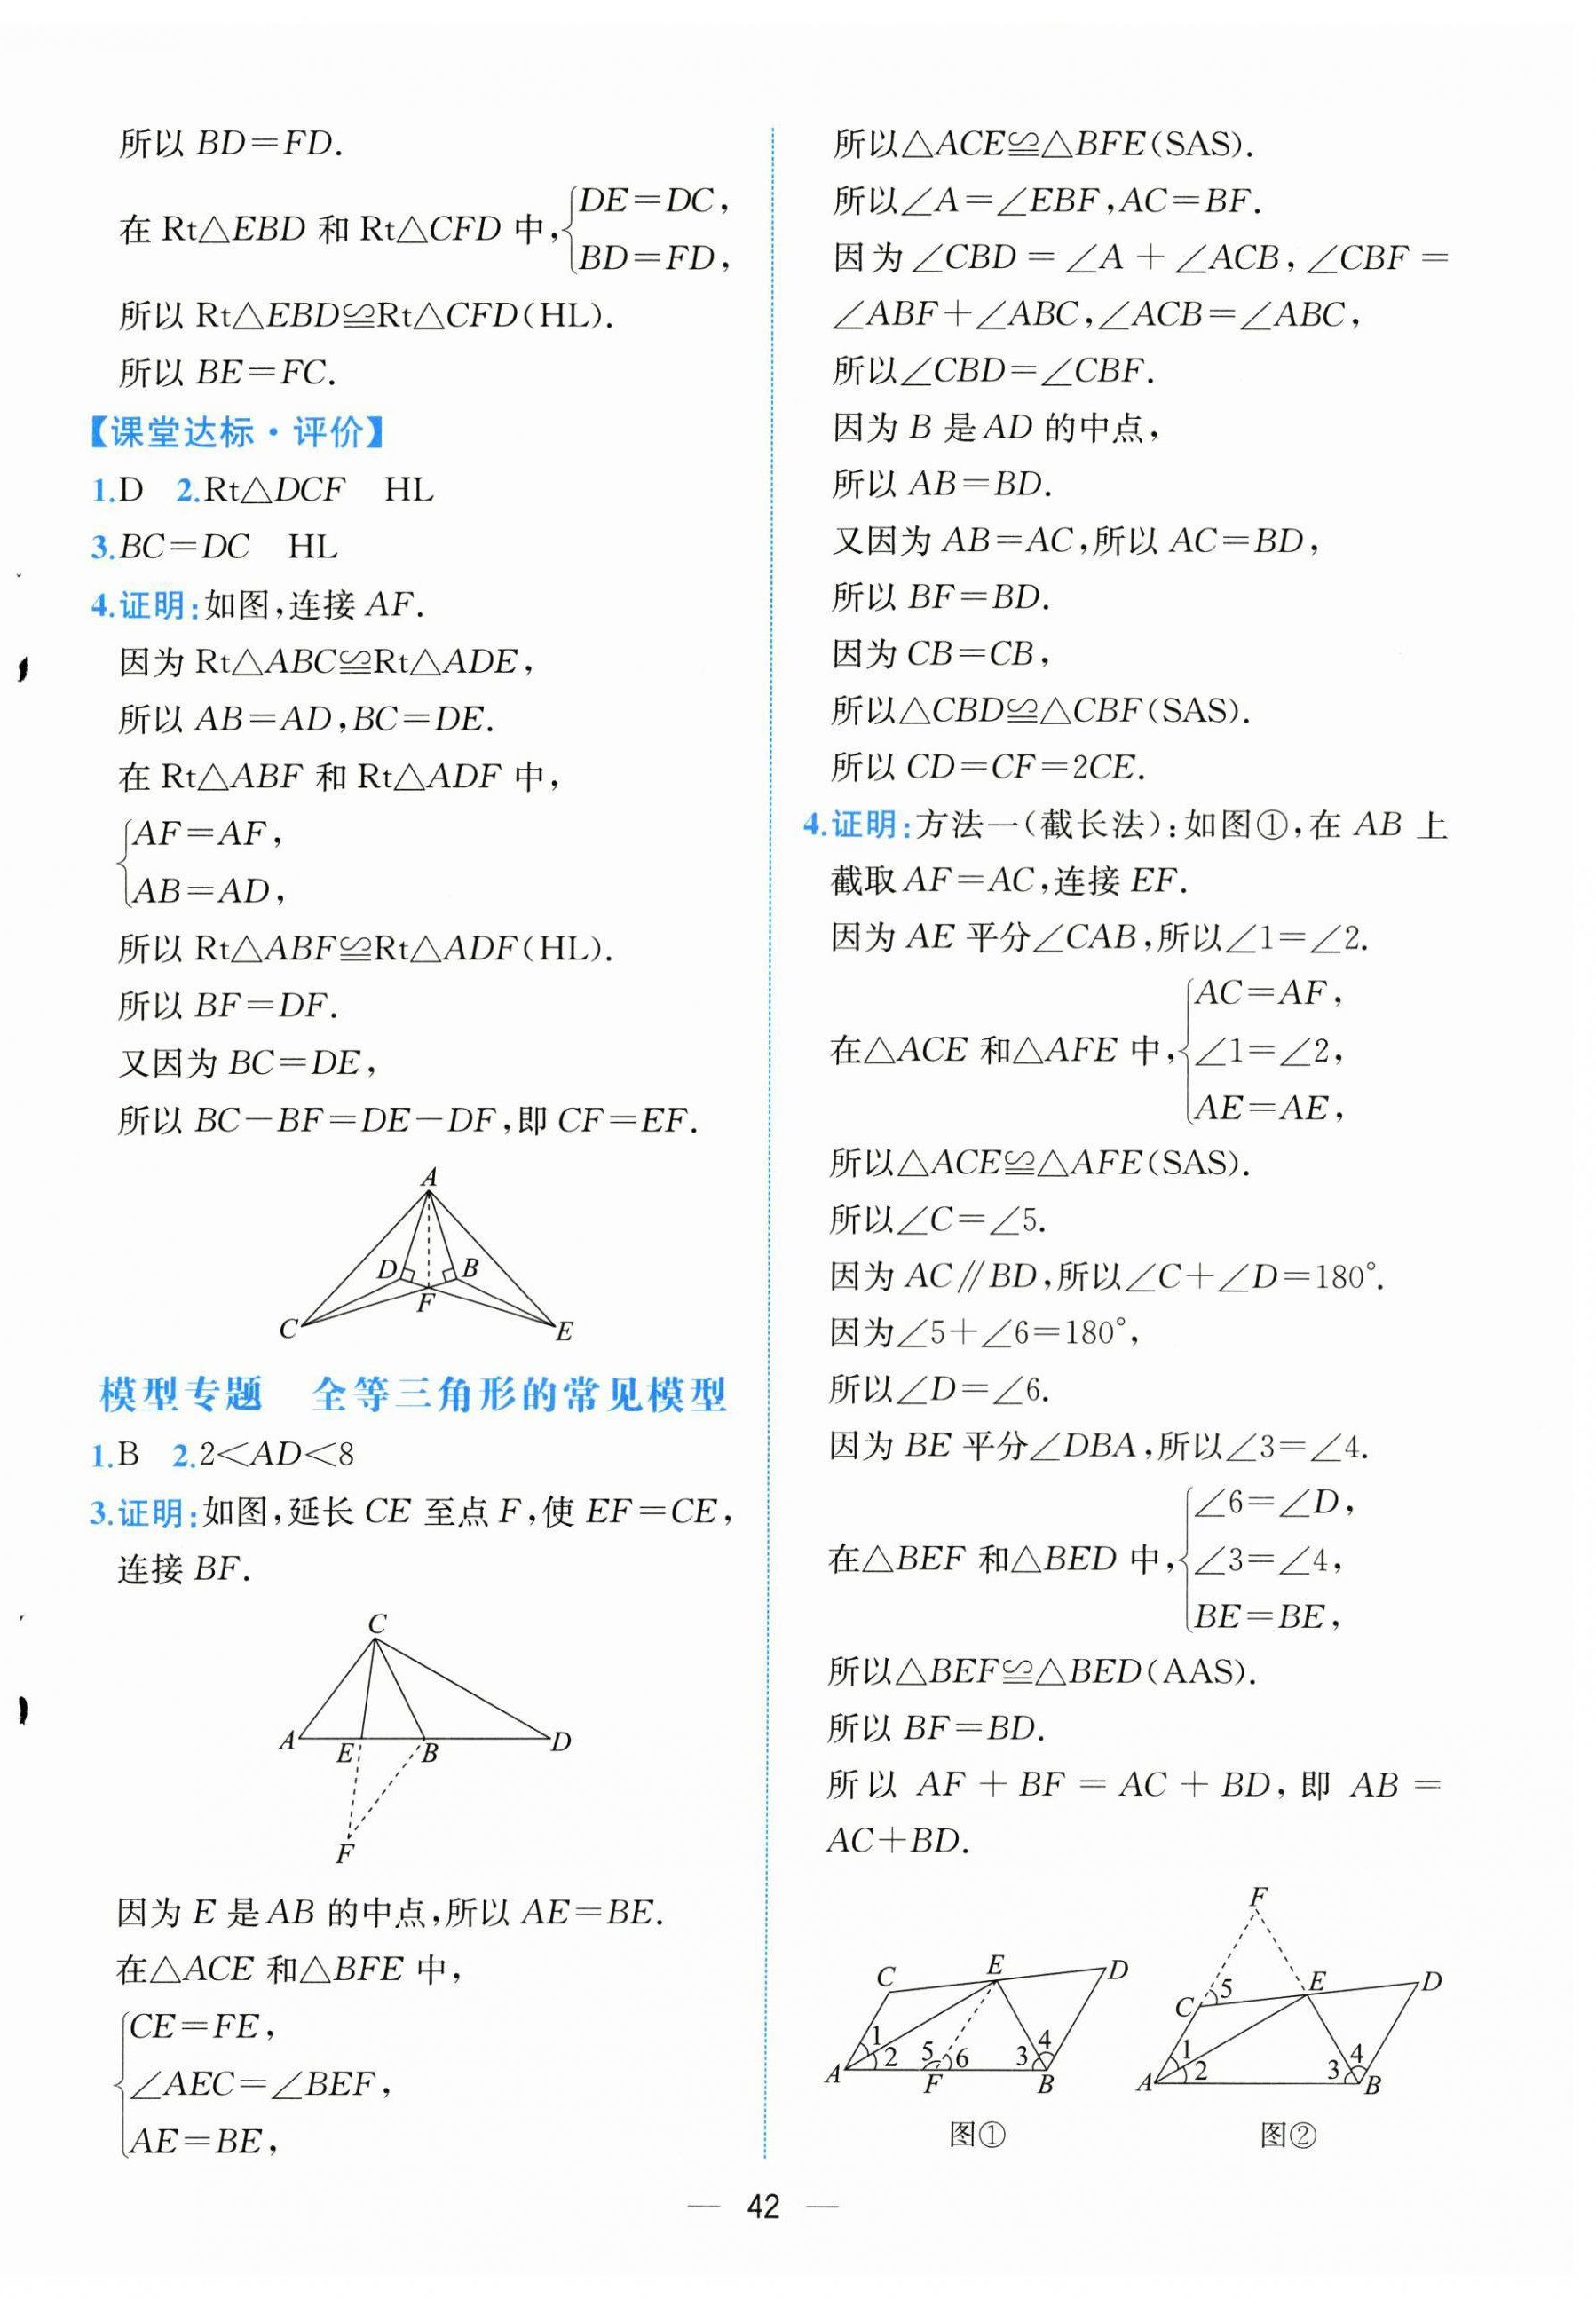 所以 BD=FD.
在 Rt△EBD 和 Rt△CFD 中,{DE=DC,
BD=FD,
所以 Rt△EBD≌Rt△CFD(HL).
所以 BE=FC.
【课堂达标·评价】
1.D 2.Rt△DCF HL
3.BC=DC HL
4.证明:如图,连接 AF.
因为 Rt△ABC≌Rt△ADE,
所以 AB=AD,BC=DE.
在 Rt△ABF 和 Rt△ADF 中,
{AF=AF,
AB=AD,
所以 Rt△ABF≌Rt△ADF(HL).
所以 BF=DF.
又因为 BC=DE,
所以 BC-BF=DE-DF,即 CF=EF.
A
D B
F
C E
模型专题 全等三角形的常见模型
1.B 2.2<AD<8
3.证明:如图,延长 CE 至点 F,使 EF=CE,
连接 BF.
C
A E B D
F
因为 E 是 AB 的中点,所以 AE=BE.
在△ACE 和△BFE 中,
{CE=FE,
∠AEC=∠BEF,
AE=BE,
所以△ACE≌△BFE(SAS).
所以∠A=∠EBF,AC=BF.
因为∠CBD=∠A+∠ACB,∠CBF=
∠ABF+∠ABC,∠ACB=∠ABC,
所以∠CBD=∠CBF.
因为 B 是 AD 的中点,
所以 AB=BD.
又因为 AB=AC,所以 AC=BD,
所以 BF=BD.
因为 CB=CB,
所以△CBD≌△CBF(SAS).
所以 CD=CF=2CE.
4.证明:方法一(截长法):如图①,在 AB 上
截取 AF=AC,连接 EF.
因为 AE 平分∠CAB,所以∠1=∠2.
在△ACE 和△AFE 中,{AC=AF,
∠1=∠2,
AE=AE,
所以△ACE≌△AFE(SAS).
所以∠C=∠5.
因为 AC∥BD,所以∠C+∠D=180°.
因为∠5+∠6=180°,
所以∠D=∠6.
因为 BE 平分∠DBA,所以∠3=∠4.
在△BEF 和△BED 中,{∠6=∠D,
∠3=∠4,
BE=BE,
所以△BEF≌△BED(AAS).
所以 BF=BD.
所以 AF+BF=AC+BD,即 AB=
AC+BD.
C E D
1 2 5 6 3 4
A F B
图①
F
C 5 E D
1 2 3 4
A B
图②
— 42 —